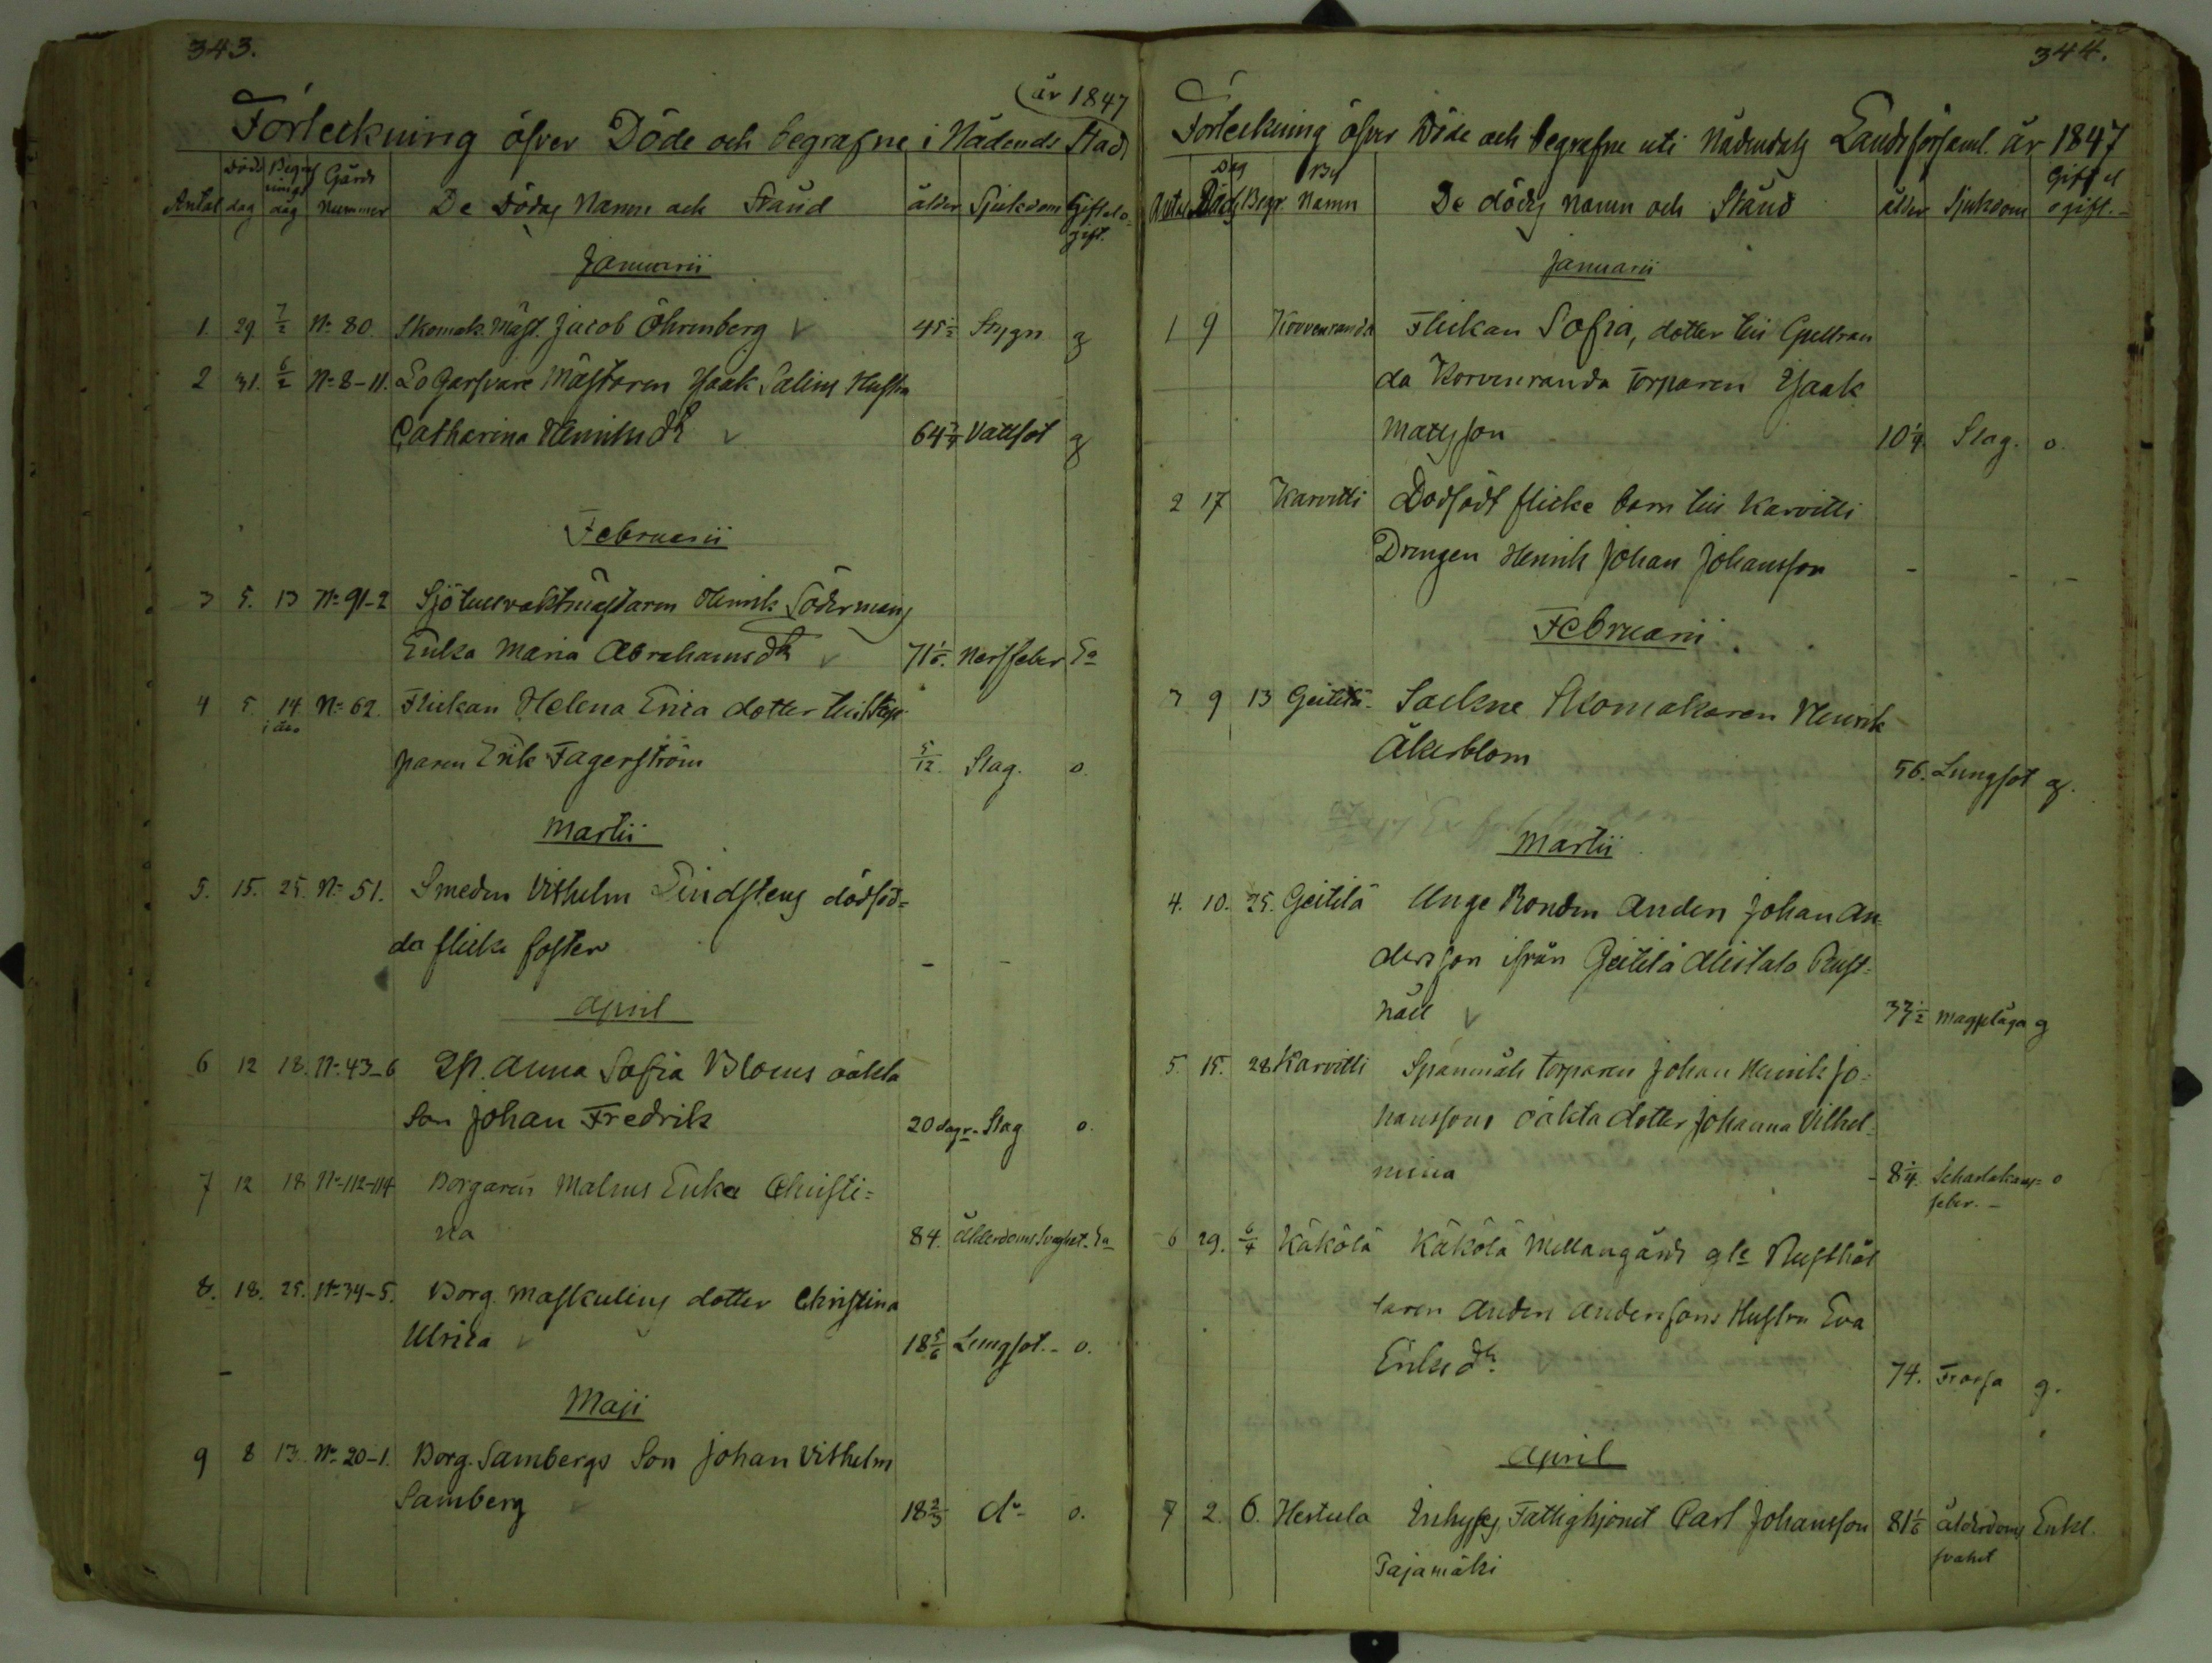 343.
år 1847
Förteckning öfver Döde och begrafne i Nådends Stad
Antal Döds dag Begrafnings dag Gårds Nummer De Dödas Namn och Stånd ålder Sjukdom Gift el. o gift.
Januarii
1. 29. 7/2 No 80. Skomak. Mäst. Jacob Öhrnberg 45 1/2 Stygn g
2 31. 6/2 No 8-11. Lo Garfvare Mästaren Isaak Salins Hustru
Catharina Henriksdr 64 3/4 Vattsot g
Februarii
3 5. 13 No 91-2 Sjötullvaktmästaren Henrik Södermans
Enka Maria Abrahamsdr 71 1/6. Nerffeber Ea
4 5. 14 No 62. Flickan Helena Erica dotter till
i deo
paren Erik Fagerström 5/12. Slag. o.
Martii
5. 15. 25. No 51. Smeden Vilhelm Lindstens dödföd=
da flicke foster - -
April
6 12 18. No 43-6 Anna Sofia Bloms oäkta
Son Johan Fredrik 20 dagr. Slag o.
7 12 18 No 112-114 Borgaren Malms Enka Christi=
na 84. Ålderdoms svaghet. Ea
8. 18. 25. No 34-5. Borg. Maskulins dotter Christina
Ulrica 18 5/6 Lungsot. o.
Maji
9 8 13. No 20-1. Borg. Sambergs Son Johan Vilhelm
Samberg 18 2/3 do o.
344.
Förteckning öfver Döde och begrafne uti Nådendals Landsförsaml. år 1847
Antal Dag Död Begr. By Namn De dödas namn och Stånd ålder Sjukdom Gift el ogift.
Januarii
1 9 Korvenranda Flickan Sofia, dotter till
da Korvenranda Torparen Isaak
Mattsson 10 1/4. Slag. o.
2 17 Karvitti Dödfödt flicke barn till Karvitti
Drengen Henrik Johan Johansson - - -
Februarii.
3 9 13 Geitilä Sockne Skomakaren Henrik
Åkerblom 56. Lungsot g.
Martii
4. 10. 25. Geitilä Unge Bonden Anders Johan An
dersson ifrån Geitilä Alistalo Rust=
håll 33 1/2 Magplåga g
5. 15. 28 Karvitti Spännäti torparen Johan Henrik Jo=
hanssons oäkta dotter Johanna Vilhel=
mina 8 1/4. Scharlakans= o
feber.
6 29. 6/4 Käkölä Käkölä Mellangårds gle Rusthål
laren Anders Anderssons Hustru Eva
Eriksdr 74. Frossa g.
April
7 2. 6. Hertula Inhyses Fattighjonet Carl Johansson 81 1/6 ålderdoms Enkl.
Pajamäki svahet